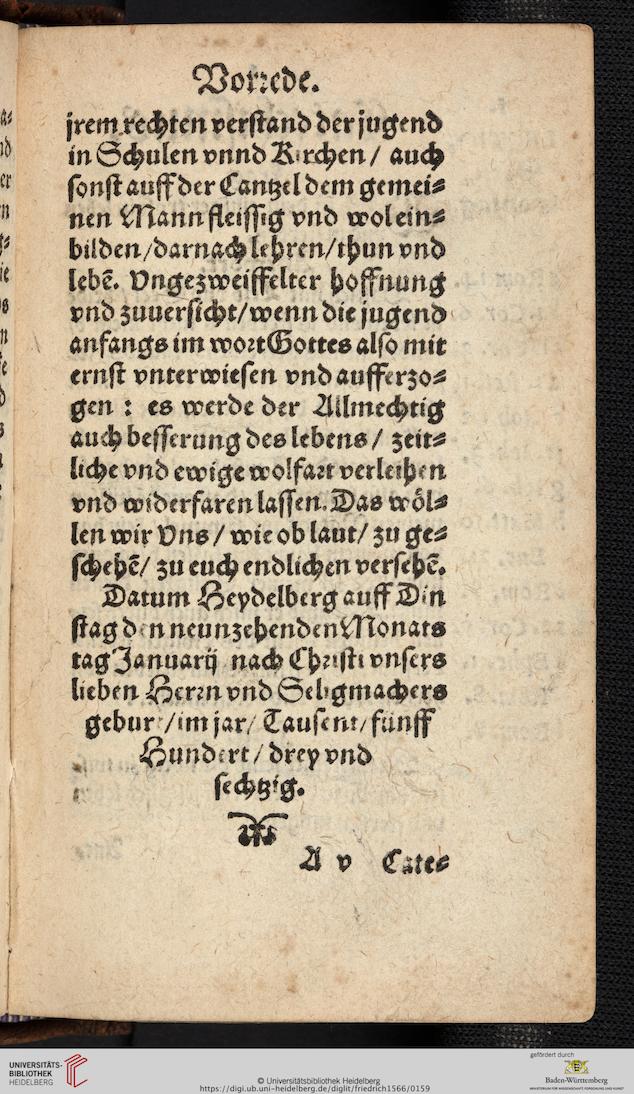 Vorrede.
jrem rechten verstand der jugend
in Schulen vnnd Kirchen / auch
sonst auff der Cantzel dem gemei=
nen Mann fleissig vnd wol ein=
bilden / darnach lehren / thun vnd
lebē. Vngezweiffelter hoffnung
vnd zuuersicht / wenn die jugend
anfangs im wort Gottes also mit
ernst vnterwiesen vnd aufferzo=
gen : es werde der Allmechtig
auch besserung des lebens / zeit=
liche vnd ewige wolfart verleihen
vnd widerfaren lassen. Das wöl=
len wir Vns / wie ob laut / zu ge=
schehē / zu euch endlichen versehē.
Datum Heydelberg auff Din
stag den neunzehenden Monats
tag Januarij nach Christi vnsers
lieben Herrn vnd Seligmachers
geburt / im jar / Tausent / fünff
Hundert / drey vnd
sechtzig.
A v Cate=
UNIVERSITÄTS-
BIBLIOTHEK
HEIDELBERG
© Universitätsbibliothek Heidelberg
https://digi.ub.uni-heidelberg.de/diglit/friedrich1566/0159
gefördert durch
Baden-Württemberg
MINISTERIUM FÜR WISSENSCHAFT, FORSCHUNG UND KUNST